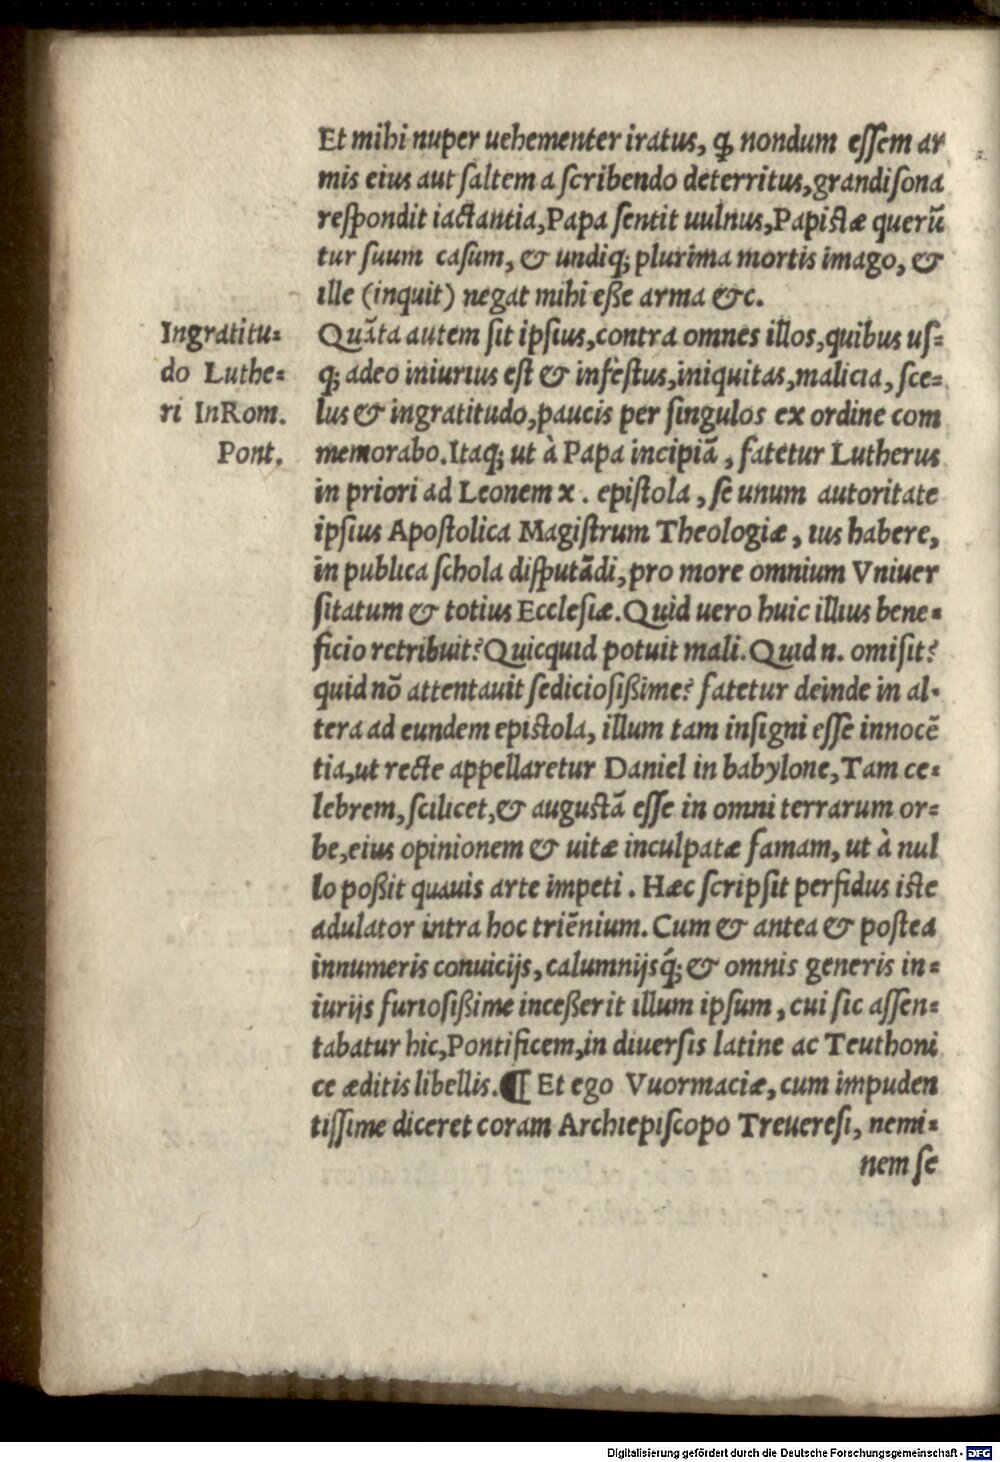 Et mihi nuper uehementer iratus, ꝙ nondum eſſem ar
mis eius aut ſaltem a ſcribendo deterritus, grandiſona
reſpondit iactantia, Papa ſentit uulnus, Papiſtæ querũ
tur ſuum caſum, & undiq; plurima mortis imago, &
ille (inquit) negat mihi eße arma &c.
Ingratitu-
do Luthe-
ri InRom.
Pont.
Quãta autem ſit ipſius, contra omnes illos, quibus uſ-
q; adeo iniurius eſt & infeſtus, iniquitas, malicia, ſce-
lus & ingratitudo, paucis per ſingulos ex ordine com
memorabo. Itaq; ut à Papa incipiã, fatetur Lutherus
in priori ad Leonem x. epiſtola, ſe unum autoritate
ipſius Apoſtolica Magiſtrum Theologiæ, ius habere,
in publica ſchola diſputãdi, pro more omnium Vniuer
ſitatum & totius Eccleſiæ. Quid uero huic illius bene-
ficio retribuit? Quicquid potuit mali. Quid n. omiſit?
quid nõ attentauit ſedicioſißime? fatetur deinde in al-
tera ad eundem epiſtola, illum tam inſigni eſſe innocẽ
tia, ut recte appellaretur Daniel in babylone, Tam ce-
lebrem, ſcilicet, & auguſtã eſſe in omni terrarum or-
be, eius opinionem & uitæ inculpatæ famam, ut à nul
lo poßit quauis arte impeti. Hæc ſcripſit perfidus iſte
adulator intra hoc triẽnium. Cum & antea & poſtea
innumeris conuicijs, calumnijsq́; & omnis generis in-
iurijs furioſißime inceßerit illum ipſum, cui ſic aſſen-
tabatur hic, Pontificem, in diuerſis latine ac Teuthoni
ce æditis libellis. ¶ Et ego Vuormaciæ, cum impuden
tiſſime diceret coram Archiepiſcopo Treuereſi, nemi-
nem ſe
Digitalisierung gefördert durch die Deutsche Forschungsgemeinschaft - DFG